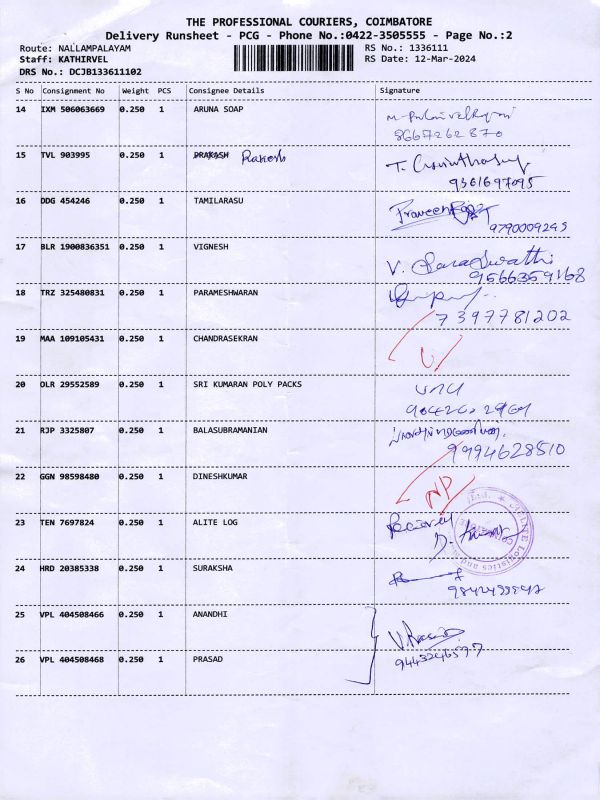 THE PROFESSIONAL COURIERS, COIMBATORE
Delivery Runsheet - PCG - Phone No.:0422-3505555 - Page No.:2
Route: NALLAMPALAYAM RS No.: 1336111
Staff: KATHIRVEL RS Date: 12-Mar-2024
DRS No.: DCJB133611102
S No Consignment No Weight PCS Consignee Details Signature
14 IXM 506063669 0.250 1 ARUNA SOAP
8667262870
15 TVL 903995 0.250 1 PRAKASH Rakesh
9361697095
16 DDG 454246 0.250 1 TAMILARASU
9790009245
17 BLR 1900836351 0.250 1 VIGNESH V. Saraswathi
9566359168
18 TRZ 325480831 0.250 1 PARAMESHWARAN
7397781202
19 MAA 109105431 0.250 1 CHANDRASEKRAN
20 OLR 29552589 0.250 1 SRI KUMARAN POLY PACKS
21 RJP 3325807 0.250 1 BALASUBRAMANIAN
9994628510
22 GGN 98598480 0.250 1 DINESHKUMAR NP
23 TEN 7697824 0.250 1 ALITE LOG
24 HRD 20385338 0.250 1 SURAKSHA
25 VPL 404508466 0.250 1 ANANDHI
26 VPL 404508468 0.250 1 PRASAD